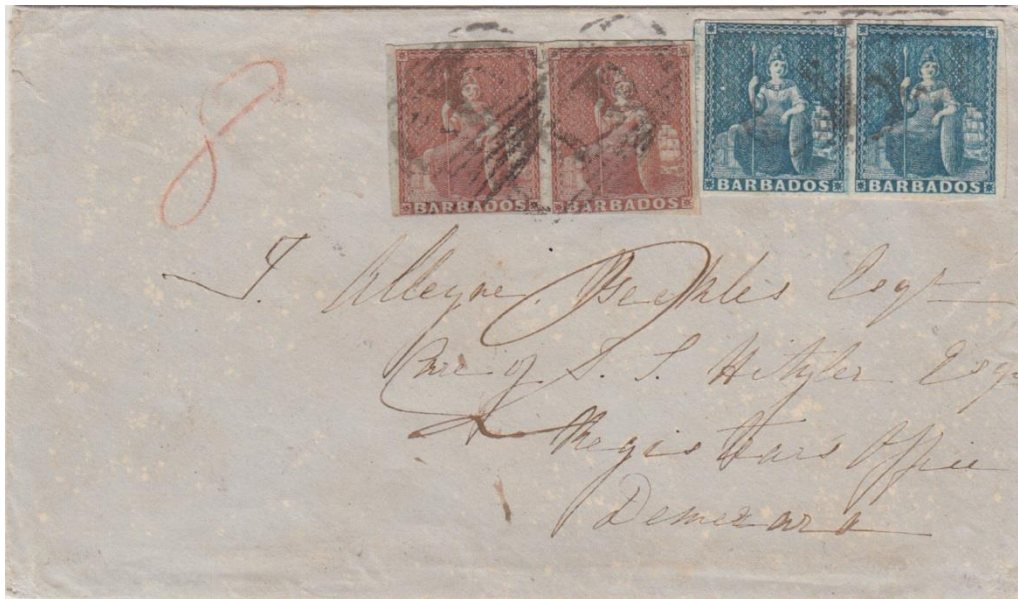 BARBADOS BARBADOS BARBADOS BARBADOS
8
J. Alleyne Beckles Esqr
Care of S. S. Hitzler Esqr
Registrars Office
Demerara